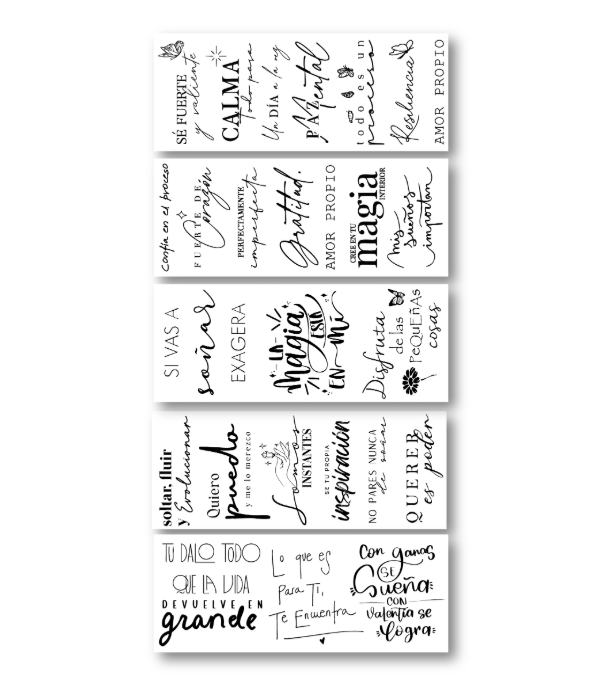 SÉ FUERTE
y valiente
CALMA
todo pasa
Un DÍA a la vez
PAZ
Mental
todo es un
proceso
Resiliencia
AMOR PROPIO
Confía en el proceso
FUERTE DE
Corazón
PERFECTAMENTE
imperfecta
Gratitud.
AMOR PROPIO
CREE EN TU
magia
INTERIOR
mis
sueños
importan
SI VAS A
soñar
EXAGERA
LA
Magia
ESTÁ
EN Mí
Disfruta
de las
PEQUEÑAS
cosas
soltar, fluir
y Evolucionar
Quiero
puedo
y me lo merezco
Somos
INSTANTES
SE TU PROPIA
inspiración
NO PARES NUNCA
de soñar
QUERER
es poder
TU DALO TODO
QUE LA VIDA
DEVUELVE EN
grande
Lo que es
Para Ti,
Te Encuentra
Con ganas
SE
Sueña
CON
Valentía se
Logra